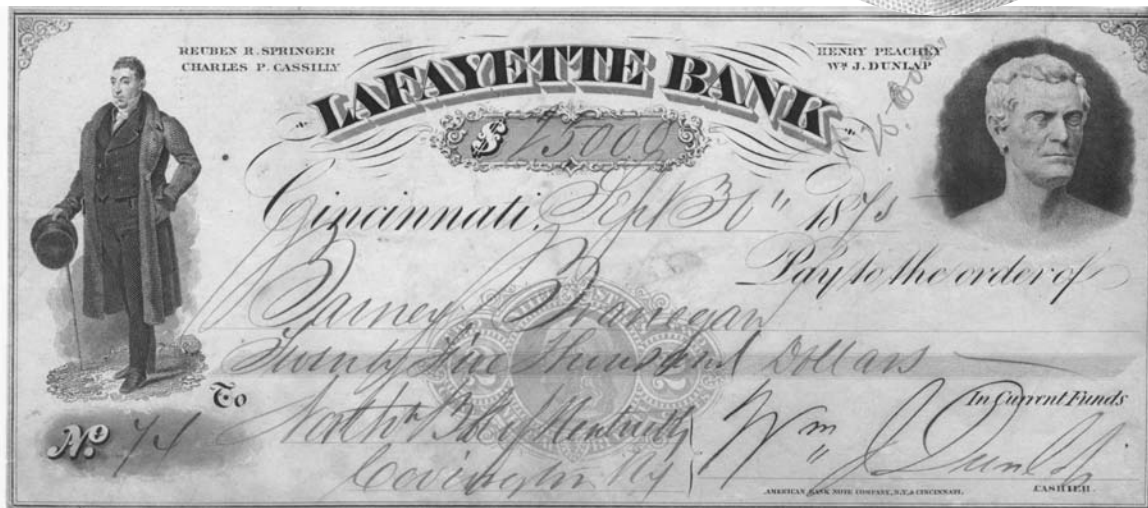 REUBEN R. SPRINGER
CHARLES P. CASSILLY
HENRY PEACHEY
Wm J. DUNLAP
LAFAYETTE BANK
$ 25000
Cincinnati, Sept 30th 1873
Pay to the order of
Barney
Twenty Five Thousand Dollars
To
In Current Funds
No. 71
Natl Bk of Kentucky
Covington Ky
Wm J Dunlap
CASHIER.
AMERICAN BANK NOTE COMPANY, N.Y. & CINCINNATI.